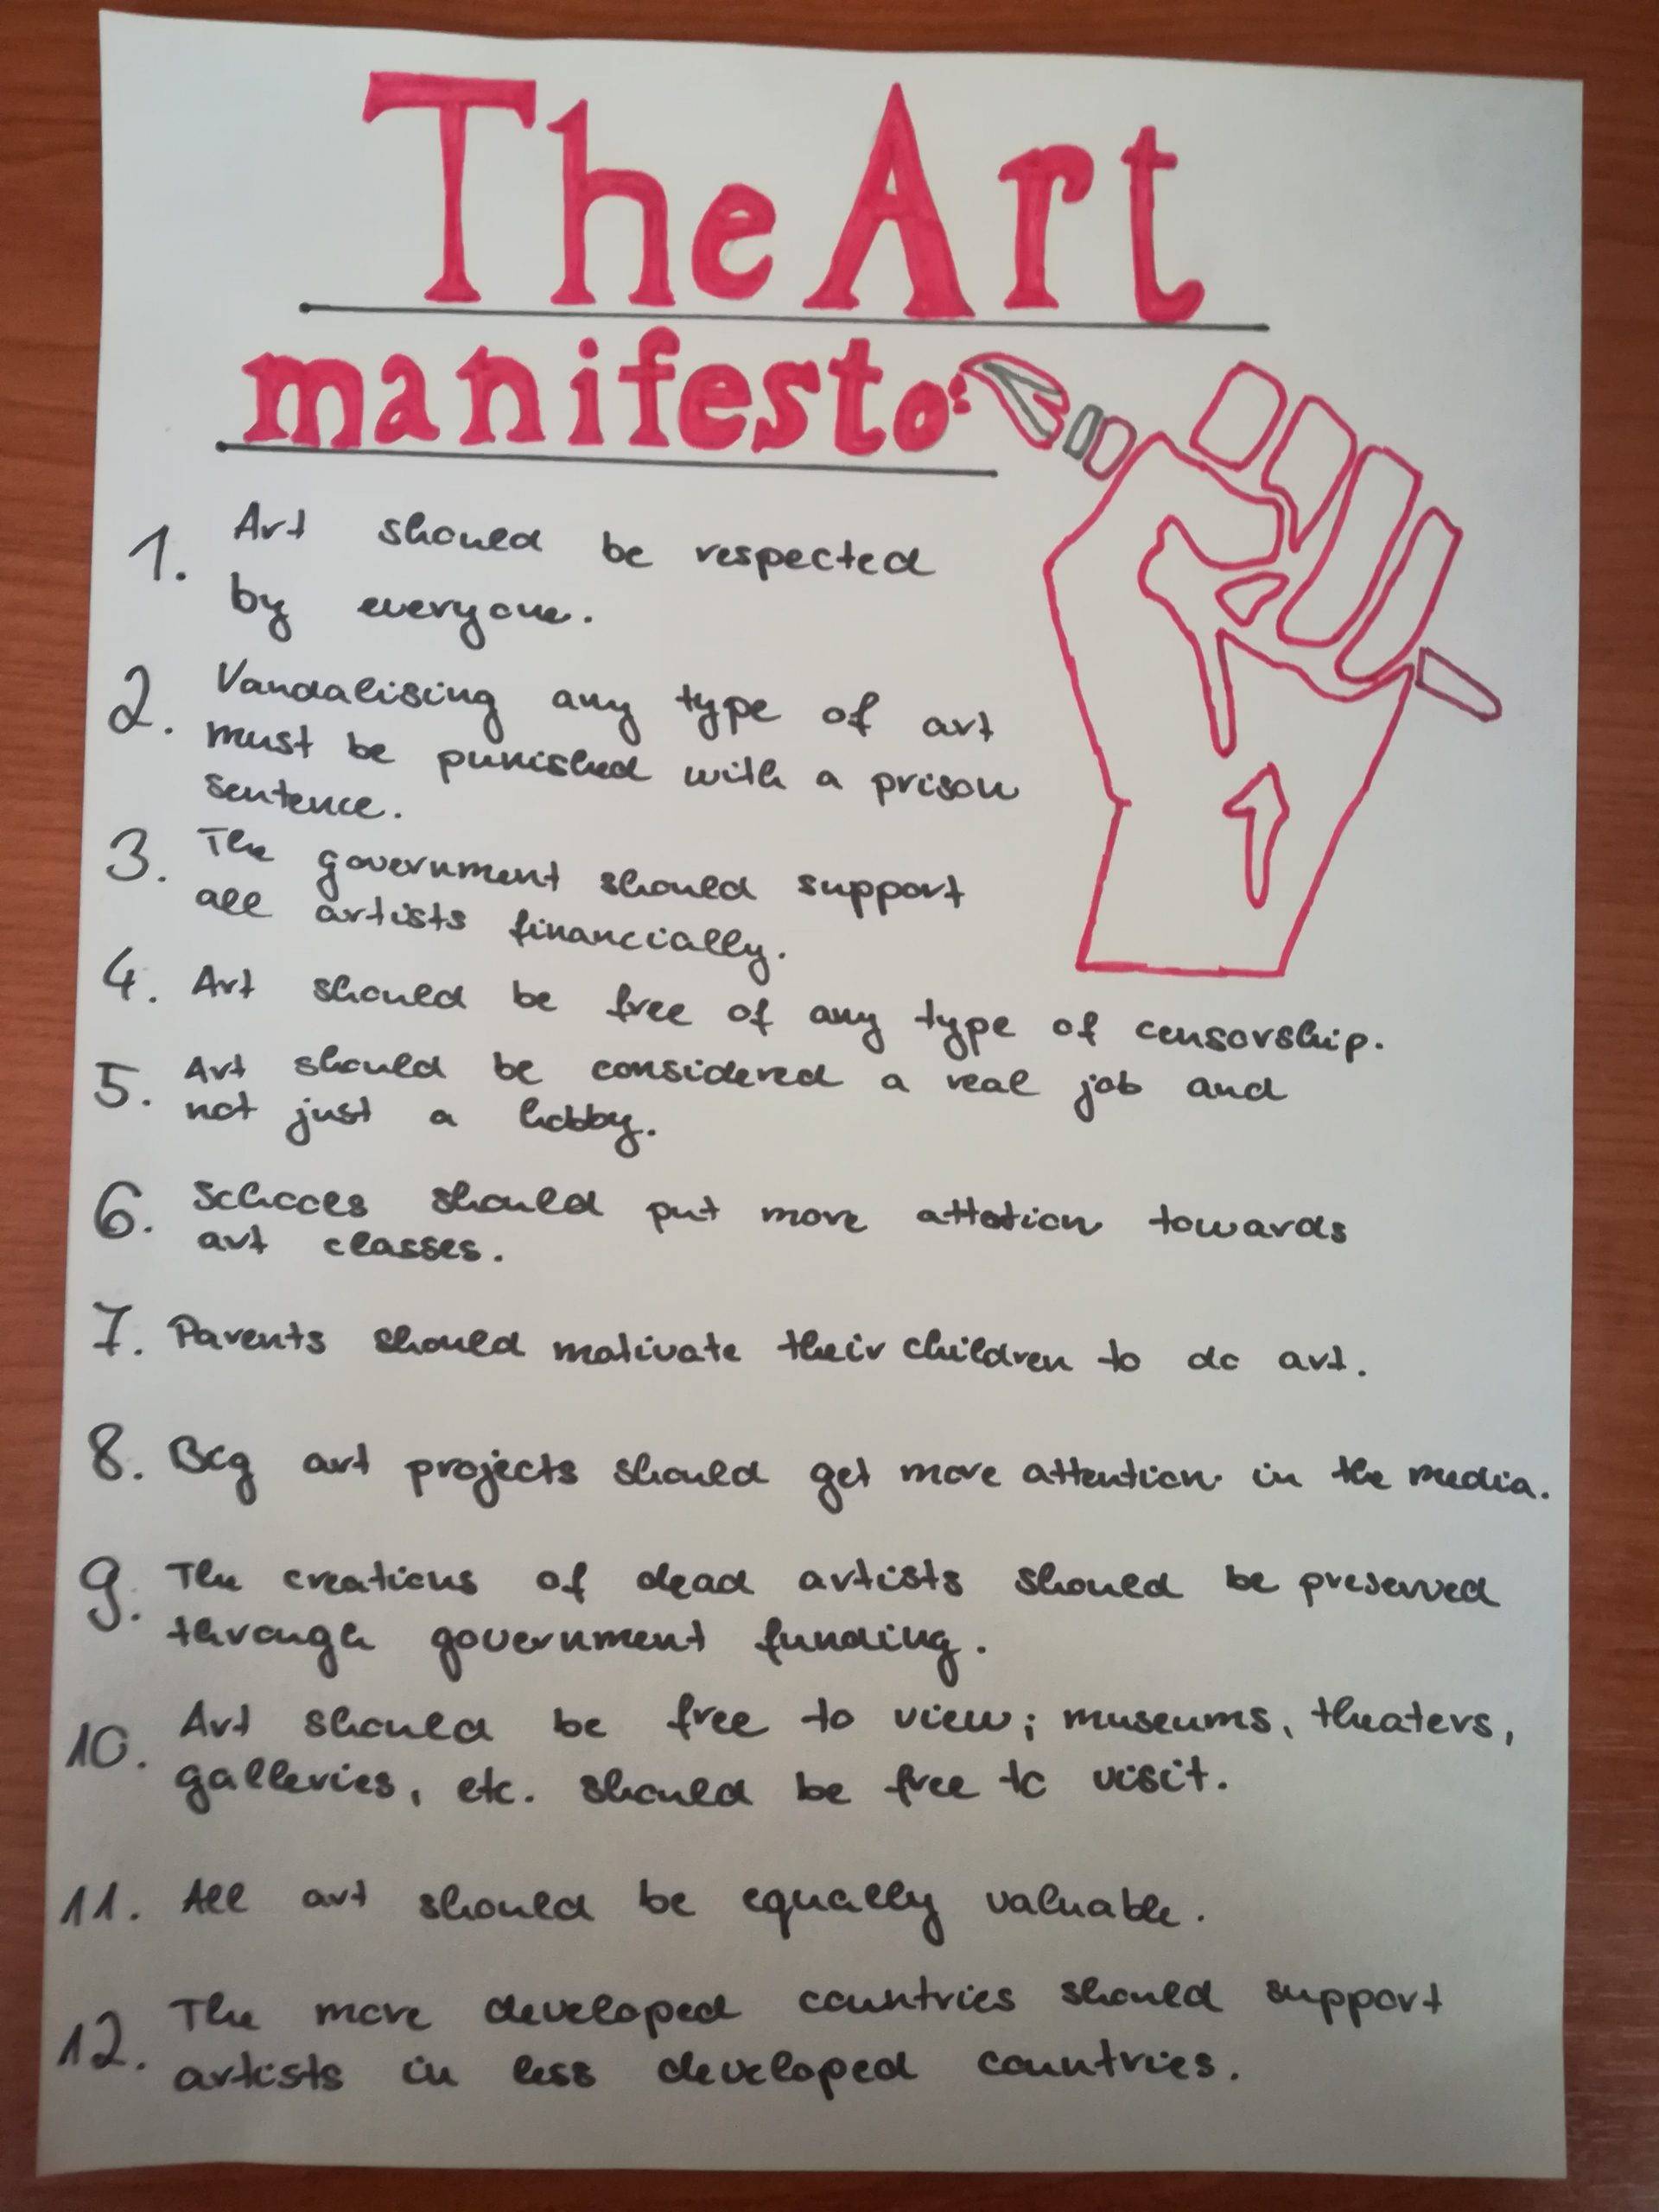 The Art
manifesto:
1. Art should be respected
by everyone.
2. Vandalising any type of art
must be punished with a prison
sentence.
3. The government should support
all artists financially.
4. Art should be free of any type of censorship.
5. Art should be considered a real job and
not just a hobby.
6. Schools should put more attotion towards
art classes.
7. Parents should motivate their children to do art.
8. Big art projects should get more attention in the media.
9. The creations of dead artists should be preserved
through government funding.
10. Art should be free to view; museums, theaters,
galleries, etc. should be free to visit.
11. All art should be equally valuable.
12. The more developed countries should support
artists in less developed countries.